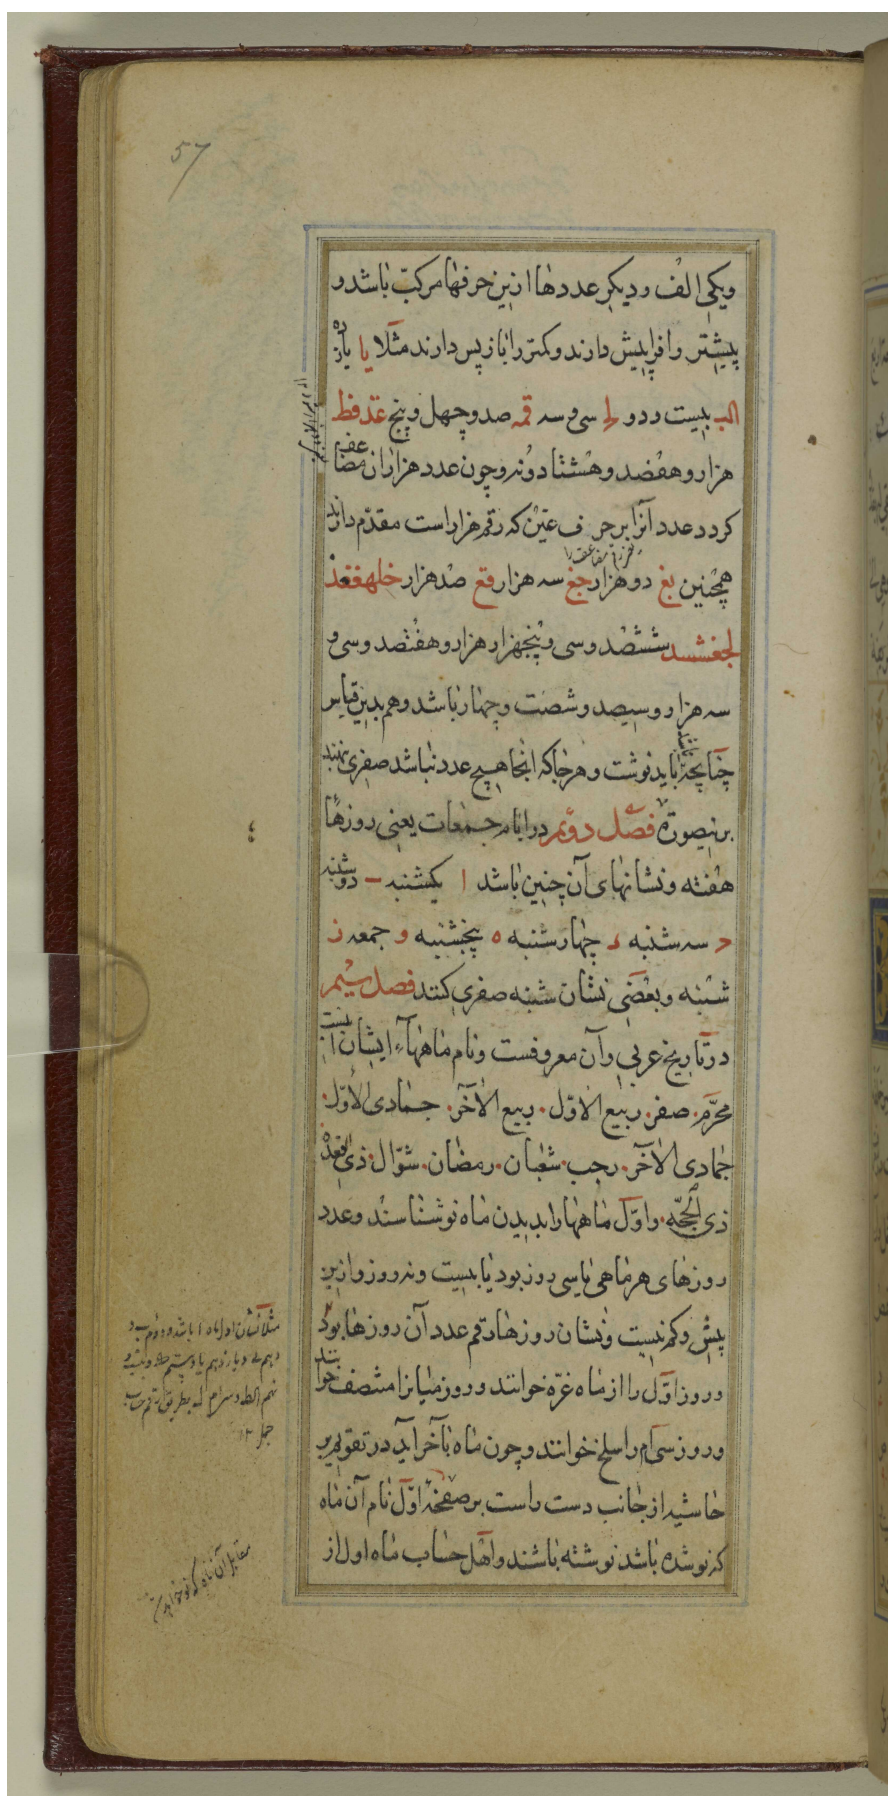 57
ویکی الف ودیکر عددها ازین حرفها مرکب باشد و
بیشتر را فراپیش دارند وکمتر را باز پس دارند مثلا یا یازده
الب بیست ودو لج سی و سه قمه صد و چهل و پنج غذفط
هزار و هفصد و هشتاد و نه و چون عدد هزاران مضاعف
کردد عدد آنرا بر حرف غین که رقم هزار است مقدم دارند
همچنین بغ دو هزار جغ سه هزار قغ صد هزار خلهغغذ
لجغشسد ششصد و سی و پنجهزار هزار و هفتصد و سی و
سه هزار و سیصد و شصت و چهار باشد و هم بدین قیاس
چنانچه باید نوشت و هر جا که انجا هیچ عدد نباشد صفری نهند
برینصورة فصل دوم در ایام جمعات یعنی روزهاء
هفته و نشانهای آن چنین باشد ا یکشنبه ب دوشنبه
ج سه شنبه د چهارشنبه ه پنجشنبه و جمعه ز
شنبه و بعضی نشان شنبه صفری کنند فصل سیم
در تاریخ عربی وآن معروفست ونام ماههاء ایشان اینست
محرم. صفر. ربیع الاول. ربیع الآخر. جمادی الاول.
جمادی الآخر. رجب. شعبان. رمضان. شوال. ذی القعده
ذی الحجه. واول ماهها را بدیدن ماه نو شناسند وعدد
روزهای هر ماهی یا سی روز بود یا بیست ونه روز وازین
بیش وکم نیست ونشان روزها رقم عدد آن روزها بود
وروز اول را از ماه غره خوانند وروز میانرا منتصف خوانند
وروز سی ام را سلخ خوانند وچون ماه بآخر آید در تقویم بر
حاشیه از جانب دست راست بر صفحهٔ اول نام آن ماه
که نو شده باشد نوشته باشند واهل حساب ماه اول از
مثلا نشان اول ماه ا باشد ودوم ب و
جمل ۱۲
مقابل آن ماه که نو خواهد